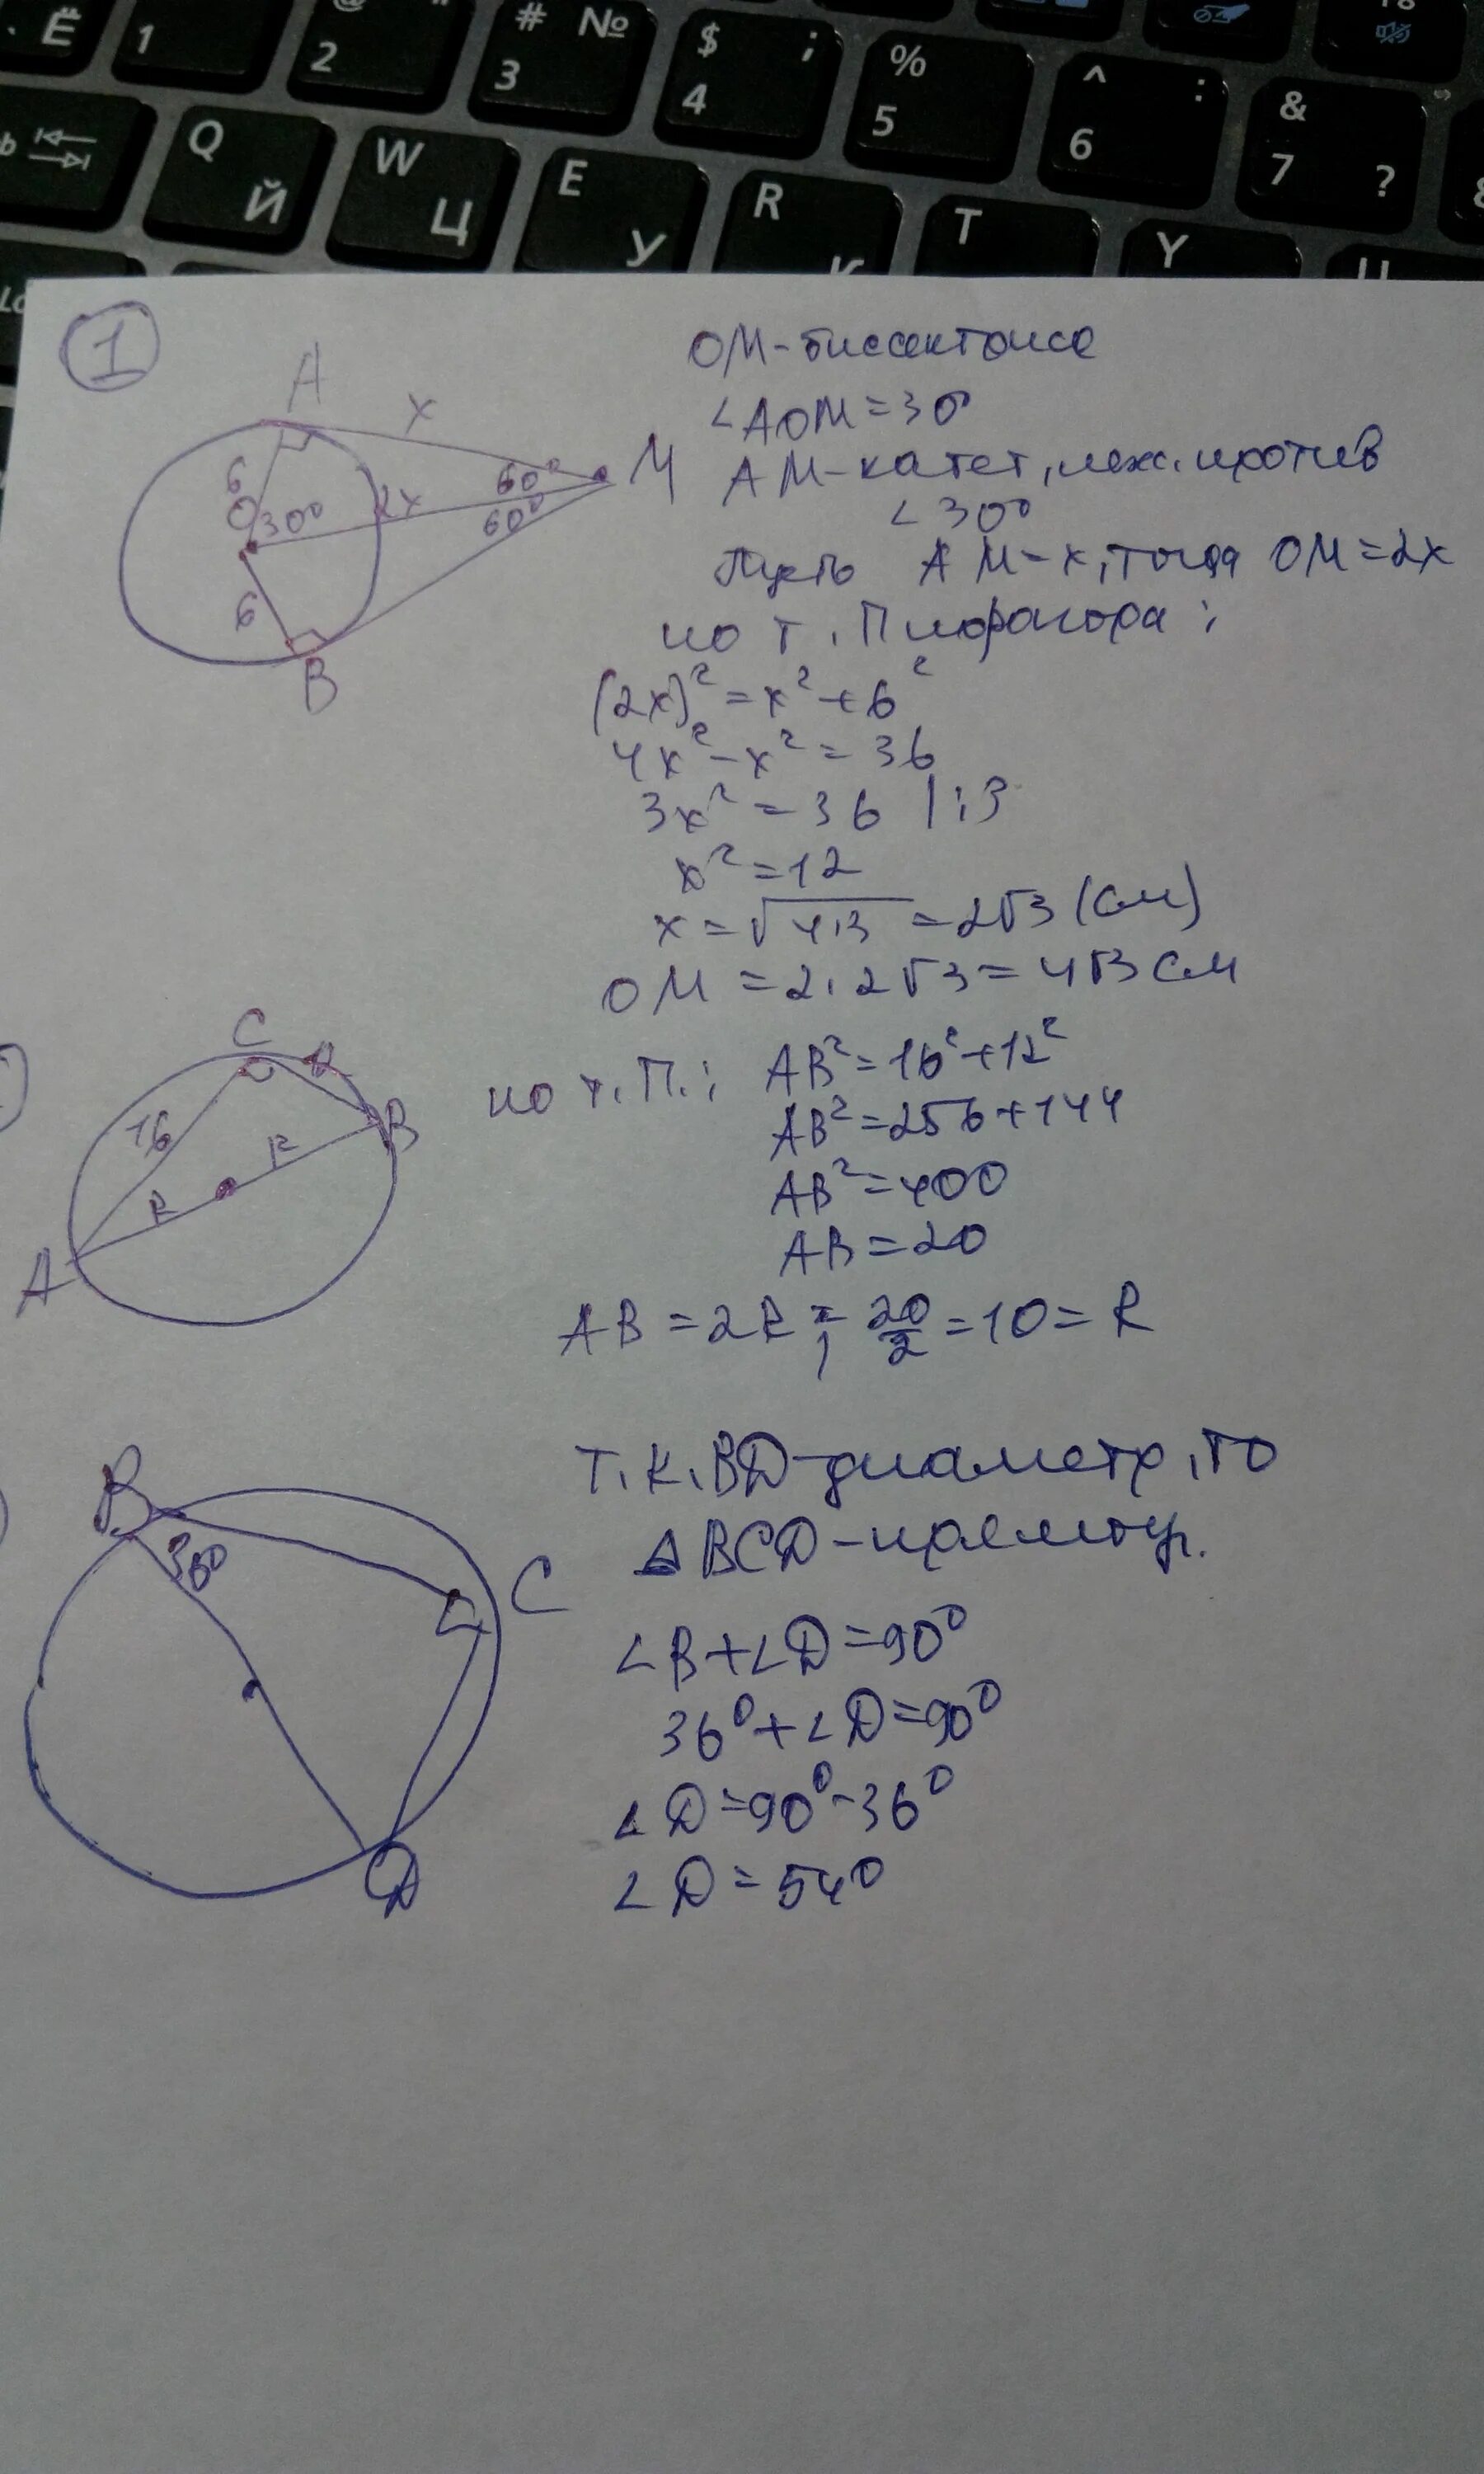 Ё 1 @ " 2 # № 3 $ ; 4 % 5 ^ : 6 & 7 ?
Q Й W Ц E У R К T Y
1
A
x
М
6
60°
2x
60°
O
30°
6
B
OM-биссектриса
∠AOM=30°
AM-катет, леж. против
∠30°
Пусть AM-x, тогда OM=2x
по т. Пифагора:
(2x)²=x²+6²
4x²-x²=36
3x²=36 |:3
x²=12
x=√4·3=2√3 (см)
OM=2·2√3=4√3 см
C
16
R
B
R
A
по т. П.: AB²=16²+12²
AB²=256+144
AB²=400
AB=20
AB=2R; 20/2=10=R
B
36°
C
D
Т.к. BD-диаметр, то
△BCD-прямоуг.
∠B+∠D=90°
36°+∠D=90°
∠D=90°-36°
∠D=54°